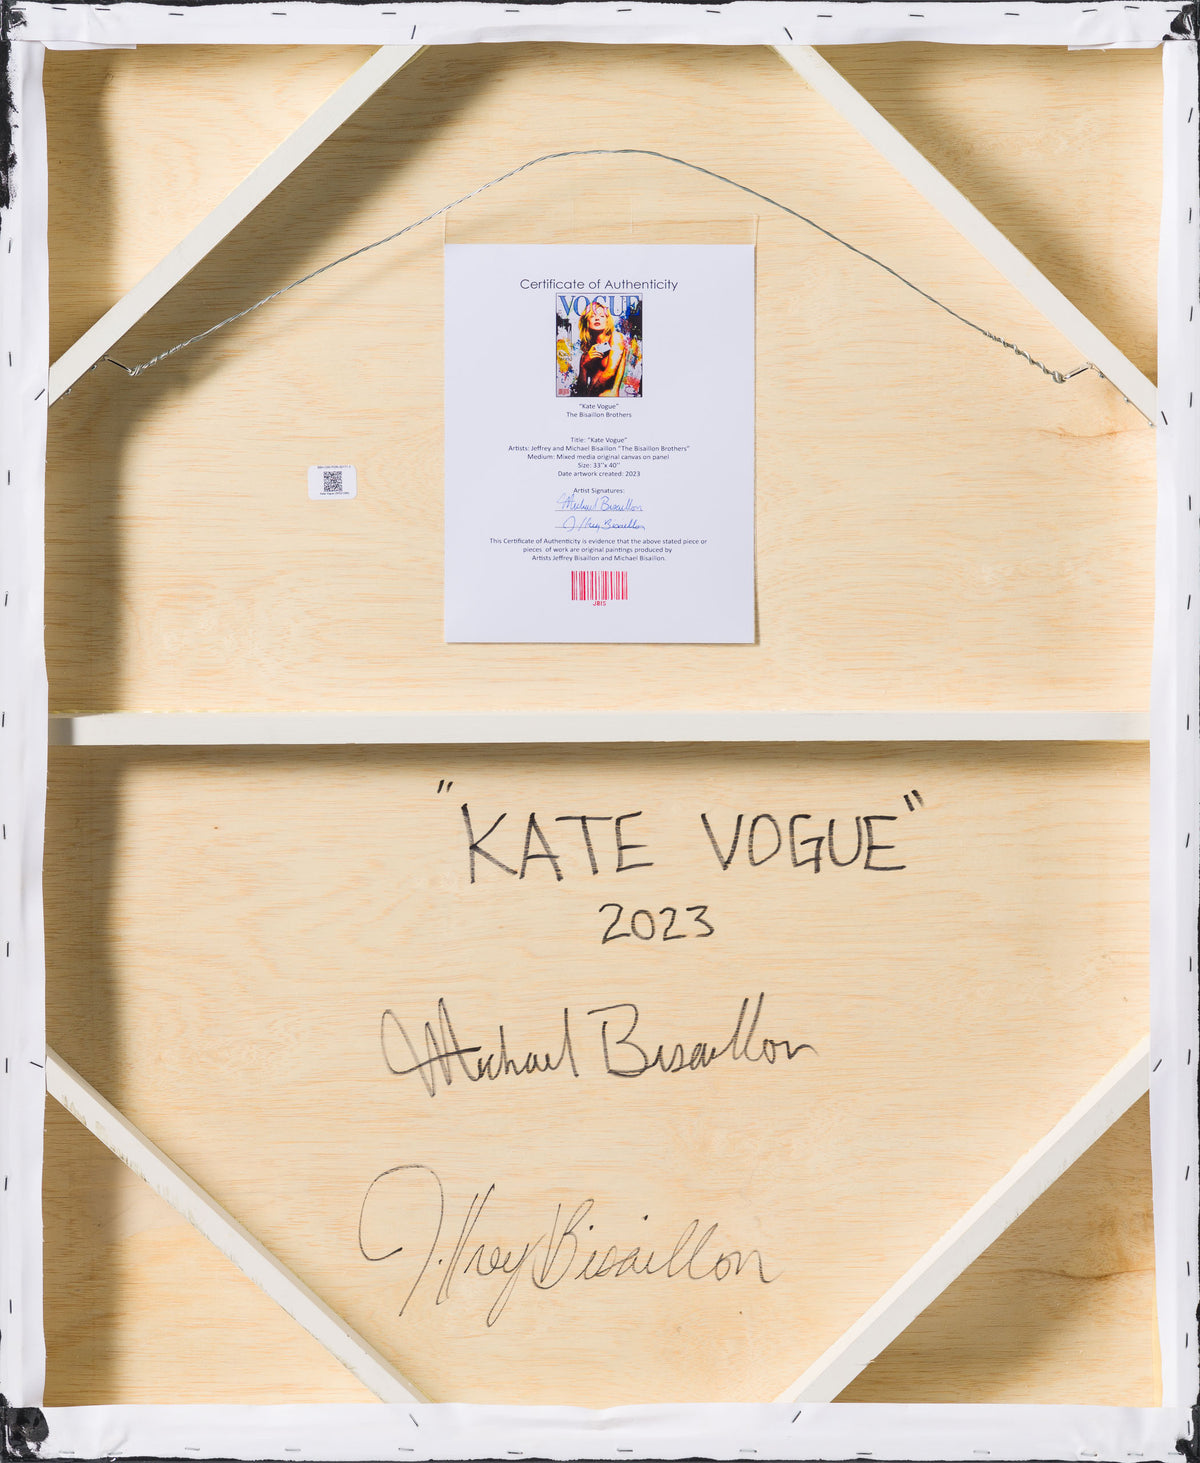 Certificate of Authenticity
VOGUE
"Kate Vogue"
The Bisaillon Brothers
Title: "Kate Vogue"
Artists: Jeffrey and Michael Bisaillon "The Bisaillon Brothers"
Medium: Mixed media original canvas on panel
Size: 33"x 40"
Date artwork created: 2023
Artist Signatures:
Michael Bisaillon
Jeffrey Bisaillon
This Certificate of Authenticity is evidence that the above stated piece or
pieces of work are original paintings produced by
Artists Jeffrey Bisaillon and Michael Bisaillon.
JBIS
"KATE VOGUE"
2023
Michael Bisaillon
Jeffrey Bisaillon